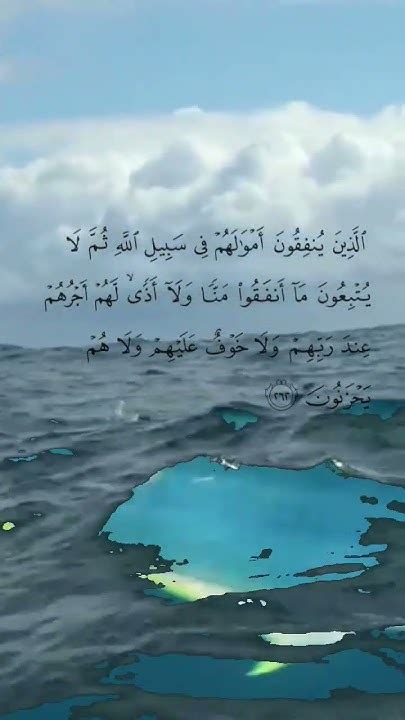 ٱلَّذِينَ يُنفِقُونَ أَمۡوَٰلَهُمۡ فِي سَبِيلِ ٱللَّهِ ثُمَّ لَا
يُتۡبِعُونَ مَآ أَنفَقُواْ مَنّٗا وَلَآ أَذٗى لَّهُمۡ أَجۡرُهُمۡ
عِندَ رَبِّهِمۡ وَلَا خَوۡفٌ عَلَيۡهِمۡ وَلَا هُمۡ
يَحۡزَنُونَ ٢٦٢